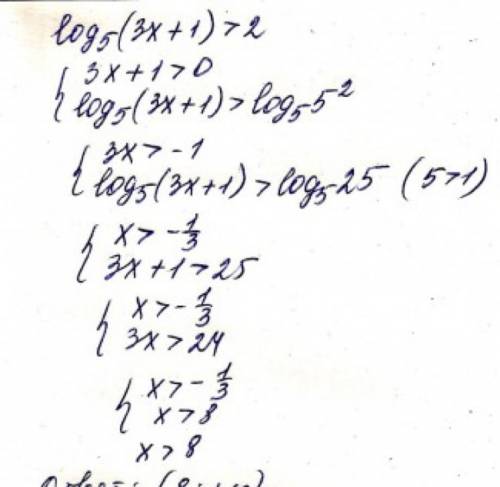 log₅(3x+1)>2
{ 3x+1>0
log₅(3x+1)>log₅5²
{ 3x>-1
log₅(3x+1)>log₅25 (5>1)
{ x>-1/3
3x+1>25
{ x>-1/3
3x>24
{ x>-1/3
x>8
x>8